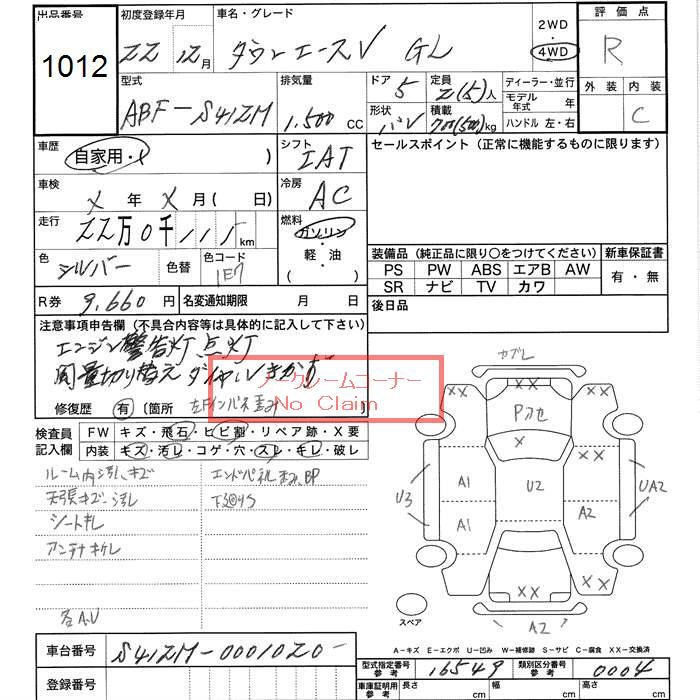 出品番号
1012
初度登録年月
22 12月
車名・グレード
タウンエースV GL
2WD
4WD
評価点
R
外装 内装
C
型式
ABF-S412M
排気量
1.500 CC
ドア
5
形状
バン
定員
2(5)人
積載
700(500)kg
ディーラー・並行
モデル年式 年
ハンドル 左・右
車歴
自家用・( )
シフト
IAT
セールスポイント(正常に機能するものに限ります)
車検
X 年 X 月( 日)
冷房
AC
走行
22万0千111km
燃料
ガソリン
軽・油
( )
色
シルバー
色替
色コード
1E7
装備品(純正品に限り〇をつけてください)
PS PW ABS エアB AW
SR ナビ TV カワ
新車保証書
有・無
R券 9.660 円
名変通知期限 月 日
後日品
注意事項申告欄(不具合内容等は具体的に記入して下さい)
エンジン警告灯点灯
風量切り替えダイヤルきかず
ノークレームコーナー
No Claim
修復歴 有(箇所
検査員記入欄
FW キズ・飛石・ヒビ割・リペア跡・X要
内装 キズ・汚レ・コゲ・穴・スレ・キレ・破レ
ルーム内汚れ、キズ
天張キズ・汚れ
シートキレ
アンテナキレ
各A.U
エンドパネル
下廻りS
カブレ
XX XX
Pカセ
X
XX
A1
U2
U3
UA2
A1
A2
XX
XX
A2
スペア
A-キズ E-エクボ U-凹み W-補修跡 S-サビ C-腐食 XX-交換済
車台番号 S412M-0001020-
登録番号
型式指定番号 参考 16549
類別区分番号 参考 0004
車庫証明用 参考 長さ cm 幅 cm 高さ cm